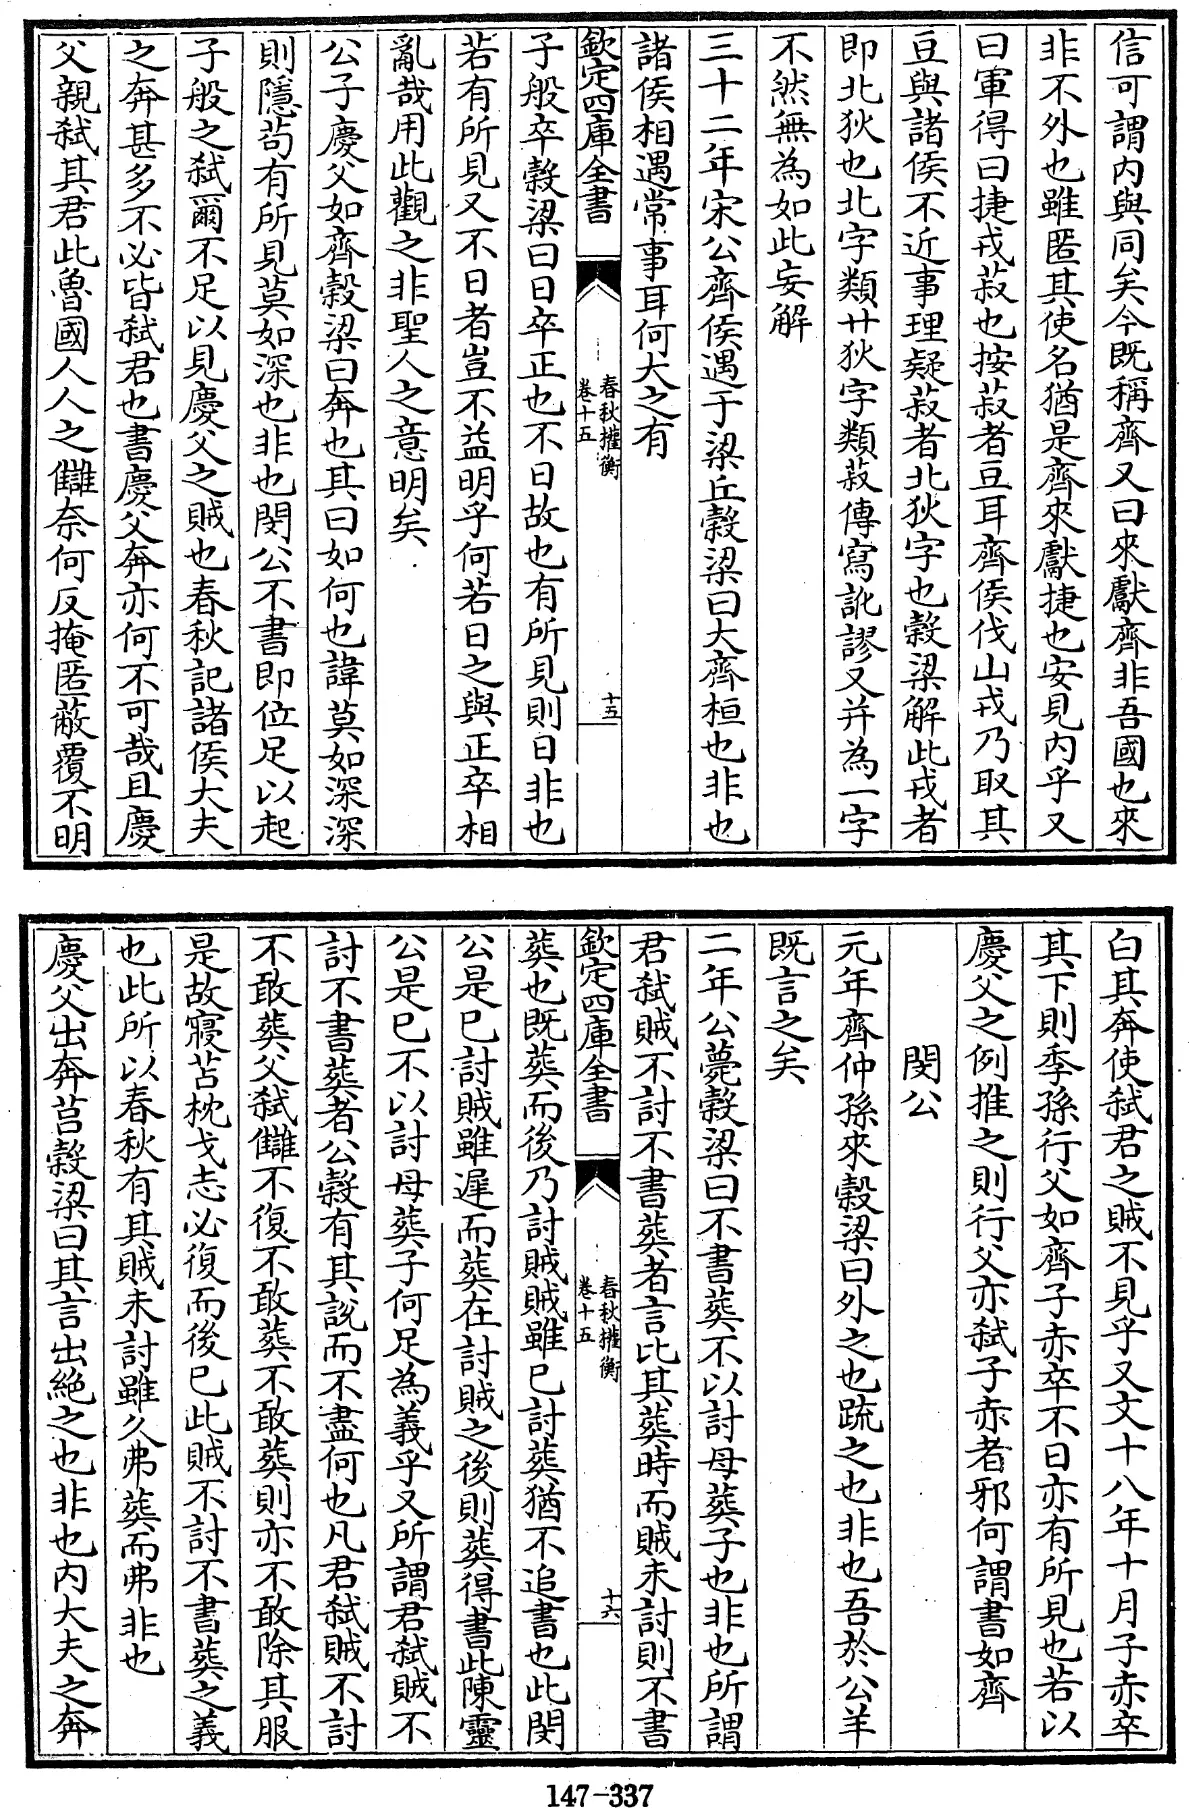 信可謂内與同矣今既稱齊又曰來獻齊非吾國也來
非不外也雖匿其使名猶是齊來獻捷也安見内乎又
曰軍得曰捷戎菽也按菽者豆耳齊侯伐山戎乃取其
豆與諸侯不近事理疑菽者北狄字也穀梁解此戎者
即北狄也北字類廿狄字類菽傳寫訛謬又并為一字
不然無為如此妄解
三十二年宋公齊侯遇于梁丘穀梁曰大齊桓也非也
諸侯相遇常事耳何大之有
欽定四庫全書
春秋權衡
卷十五
十五
子般卒穀梁曰日卒正也不日故也有所見則日非也
若有所見又不日者豈不益明乎何若日之與正卒相
亂哉用此觀之非聖人之意明矣
公子慶父如齊穀梁曰奔也其曰如何也諱莫如深深
則隱茍有所見莫如深也非也閔公不書即位足以起
子般之弑爾不足以見慶父之賊也春秋記諸侯大夫
之奔甚多不必皆弑君也書慶父奔亦何不可哉且慶
父親弑其君此魯國人人之讎奈何反掩匿蔽覆不明
白其奔使弑君之賊不見乎又文十八年十月子赤卒
其下則季孫行父如齊子赤卒不日亦有所見也若以
慶父之例推之則行父亦弑子赤者邪何謂書如齊
閔公
元年齊仲孫來穀梁曰外之也疏之也非也吾於公羊
既言之矣
二年公薨穀梁曰不書葬不以討母葬子也非也所謂
君弑賊不討不書葬者言比其葬時而賊未討則不書
欽定四庫全書
春秋權衡
卷十五
十六
葬也既葬而後乃討賊賊雖已討葬猶不追書也此閔
公是已討賊雖遲而葬在討賊之後則葬得書此陳靈
公是已不以討母葬子何足為義乎又所謂君弑賊不
討不書葬者公穀有其説而不盡何也凡君弑賊不討
不敢葬父弑讎不復不敢葬不敢葬則亦不敢除其服
是故寢苫枕戈志必復而後已此賊不討不書葬之義
也此所以春秋有其賊未討雖久弗葬而弗非也
慶父出奔莒穀梁曰其言出絶之也非也内大夫之奔
147-337